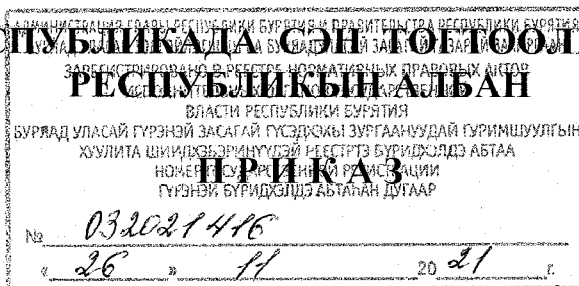 АДМИНИСТРАЦИЯ ГЛАВЫ РЕСПУБЛИКИ БУРЯТИЯ И ПРАВИТЕЛЬСТВА РЕСПУБЛИКИ БУРЯТИЯ
ПУБЛИКАДА СЭН ТОГТООЛ
ЗАРЕГИСТРИРОВАНО В РЕЕСТРЕ НОРМАТИВНЫХ ПРАВОВЫХ АКТОВ
РЕСПУБЛИКЫН АЛБАН
ВЛАСТИ РЕСПУБЛИКИ БУРЯТИЯ
БУРЯАД УЛАСАЙ ГҮРЭНЭЙ ЗАСАГАЙ ГҮЙСЭДХЭХЫ ЗУРГААНУУДАЙ ГУРИМШУУЛҺАН
ХУУЛИТА ШИИДХЭБЭРИНҮҮДЭЙ РЕЕСТРТЭ БҮРИДХЭЛДЭ АБТАА
НОМЕР ГОСУДАРСТВЕННОЙ РЕГИСТРАЦИИ
ПРИКАЗ
ГҮРЭНЭЙ БҮРИДХЭЛДЭ АБТАҺАН ДУГААР
№ 032021416
« 26 » 11 20 21 г.